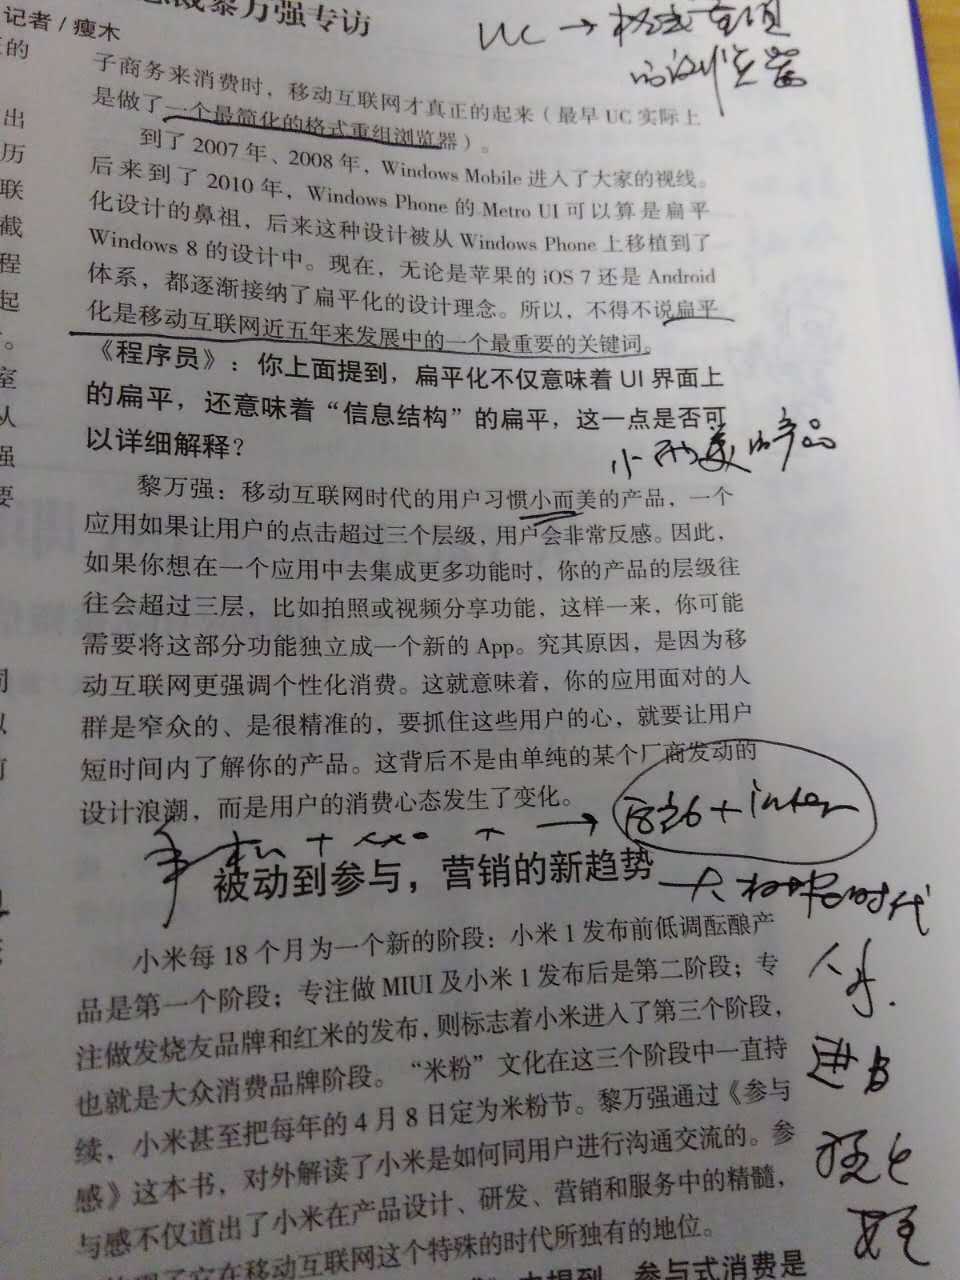 总裁黎万强专访
记者/瘦木
UC → 格式重组
的浏览器
子商务来消费时，移动互联网才真正的起来（最早 UC 实际上
是做了一个最简化的格式重组浏览器）。
到了 2007 年、2008 年，Windows Mobile 进入了大家的视线。
后来到了 2010 年，Windows Phone 的 Metro UI 可以算是扁平
化设计的鼻祖，后来这种设计被从 Windows Phone 上移植到了
Windows 8 的设计中。现在，无论是苹果的 iOS 7 还是 Android
体系，都逐渐接纳了扁平化的设计理念。所以，不得不说扁平
化是移动互联网近五年来发展中的一个最重要的关键词。
《程序员》：你上面提到，扁平化不仅意味着 UI 界面上
的扁平，还意味着“信息结构”的扁平，这一点是否可
以详细解释？
小而美的产品
黎万强：移动互联网时代的用户习惯小而美的产品，一个
应用如果让用户的点击超过三个层级，用户会非常反感。因此，
如果你想在一个应用中去集成更多功能时，你的产品的层级往
往会超过三层，比如拍照或视频分享功能，这样一来，你可能
需要将这部分功能独立成一个新的 App。究其原因，是因为移
动互联网更强调个性化消费。这就意味着，你的应用面对的人
群是窄众的、是很精准的，要抓住这些用户的心，就要让用户
短时间内了解你的产品。这背后不是由单纯的某个厂商发动的
设计浪潮，而是用户的消费心态发生了变化。
手机 + xxo → + inter
被动到参与，营销的新趋势
时代
小米每 18 个月为一个新的阶段：小米 1 发布前低调酝酿产
品是第一个阶段；专注做 MIUI 及小米 1 发布后是第二阶段；专
注做发烧友品牌和红米的发布，则标志着小米进入了第三个阶段，
也就是大众消费品牌阶段。“米粉”文化在这三个阶段中一直持
续，小米甚至把每年的 4 月 8 日定为米粉节。黎万强通过《参与
感》这本书，对外解读了小米是如何同用户进行沟通交流的。参
与感不仅道出了小米在产品设计、研发、营销和服务中的精髓，
它在移动互联网这个特殊的时代所独有的地位。
中提到，参与式消费是